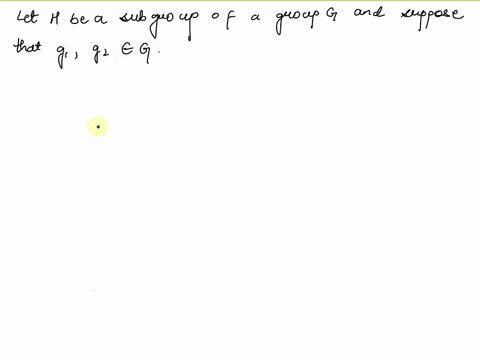 Let H be a subgroup of a group G and suppose
that g₁, g₂ ∈ G.